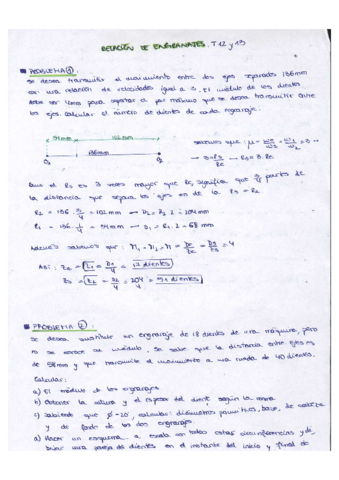 RELACIÓN DE ENGRANAJES. T12 y 13
PROBLEMA ①:
Se desea transmitir el movimiento entre dos ejes separados 136mm
con una relación de velocidades igual a 3. El módulo de los dientes
debe ser 4mm para soportar el par máximo que se desea transmitir entre
los ejes. Calcular el número de dientes de cada engranaje.
34mm 102mm
136mm
O₁ O₂
Sabemos que:
→ Rs = 3·Re
que el Rs es 3 veces mayor que Re, significa que 3/4 partes de
la distancia que separa los ejes es de la Rs = R₂
R₂ = 136 · 3/4 = 102mm → D₂ = R₂·2 = 204mm
R₁ = 136 · 1/4 = 34mm → D₁ = R₁·2 = 68mm
Además sabemos que: = 4
Así: Ze = Z₁ = D₁/4 = 17 dientes
Zs = Z₂ = D₂/4 = 204/4 = 51 dientes
PROBLEMA ②:
Se desea sustituir un engranaje de 18 dientes de una máquina, pero
no se conoce su módulo. Se sabe que la distancia entre ejes es
de 58mm y que transmite el movimiento a una rueda de 40 dientes.
Calcular:
a) El módulo de los engranajes
b) Obtener la altura y el espesor del diente según la norma
c) Sabiendo que ϕ=20, calcular: diámetros primitivos, base, de cabeza
y de fondo de los dos engranajes.
d) Hacer un esquema a escala con todas estas circunferencias y di-
bujar una pareja de dientes en el instante del inicio y final de